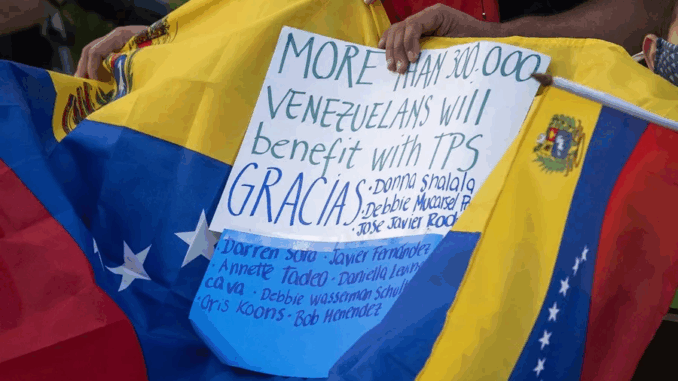 MORE THAN 300.000
VENEZUELANS WILL
benefit with TPS
GRACIAS · Donna Shalala
· Debbie Mucarsel
· Jose Javier Rod
Darren Soto · Javier Fernández
· Annette Tadeo · Daniella Levin
cava · Debbie Wasserman Schul
· Cris Koons · Bob Menendez